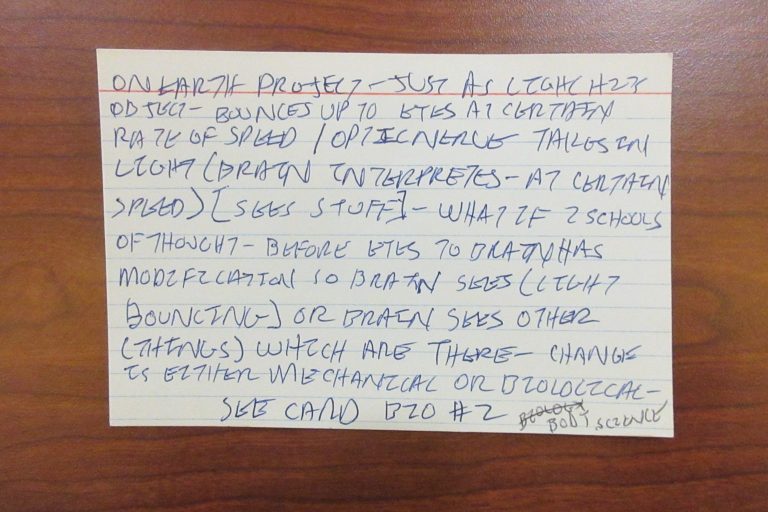 ON EARTH PROJECT - JUST AS LIGHT HITS
OBJECT - BOUNCES UP TO EYES AT CERTAIN
RATE OF SPEED / OPTIC NERVE TAKES IN
LIGHT (BRAIN INTERPRETES - AT CERTAIN
SPEED) [SEES STUFF] - WHAT IF 2 SCHOOLS
OF THOUGHT - BEFORE EYES TO BRAIN HAS
MODIFICATION SO BRAIN SEES (LIGHT
BOUNCING) OR BRAIN SEES OTHER
(THINGS) WHICH ARE THERE - CHANGE
IS EITHER MECHANICAL OR BIOLOGICAL -
SEE CARD BIO #2
BIOLOGY
BODY SCIENCE